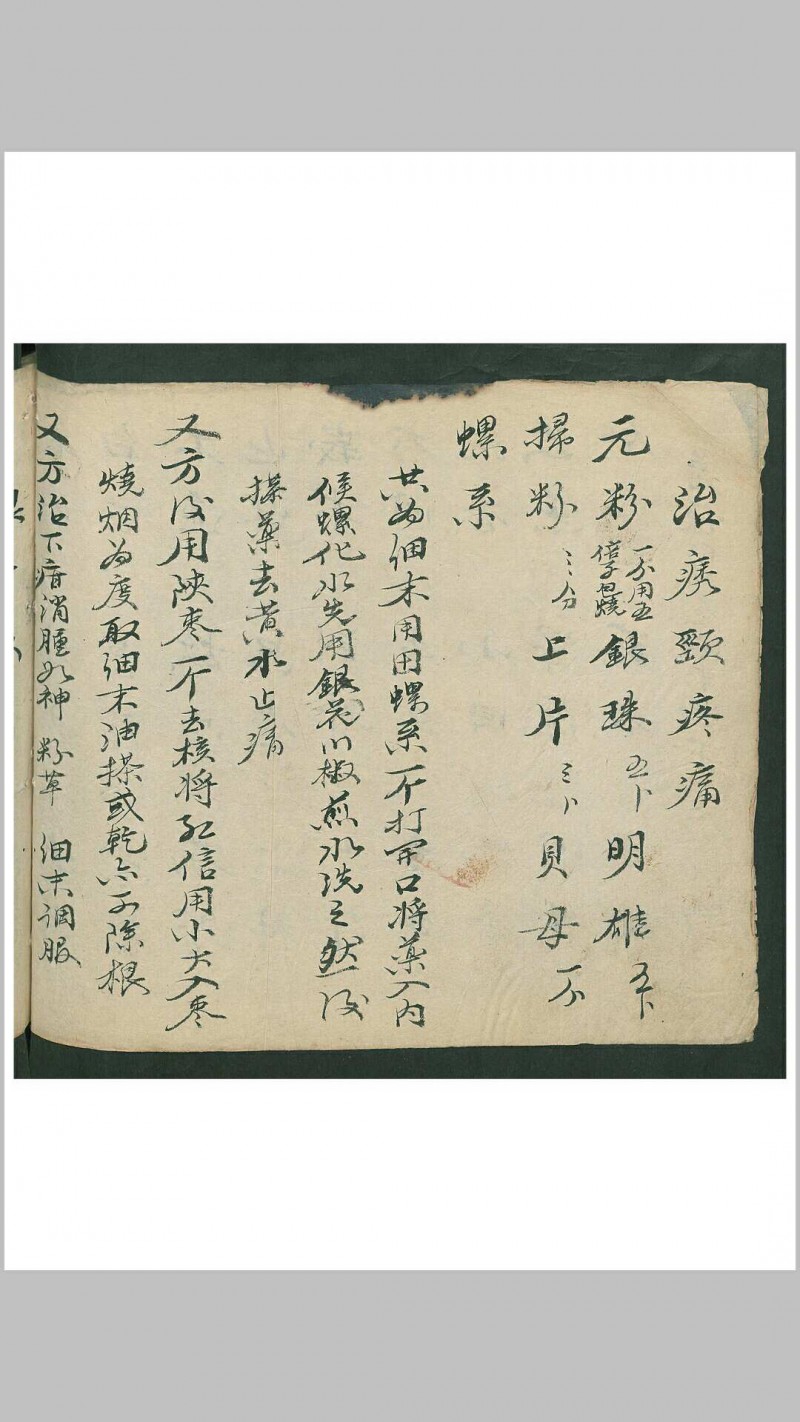 治痜頸疼痛
元粉 一分用五倍子包燒 銀珠 五卜 明雄 五卜
掃粉 三分 上片 三卜 貝母 一分
螺系
共為細末用田螺系一个打開口將藥入內
候螺化水先用銀花川椒煎水洗之然後
搽藥去黃水止痛
又方後用陝棗一个去核將紅信用小大入棗
燒烟為度取細末油搽或乾亦可除根
又方治下疳消腫如神 粉草 細末調服